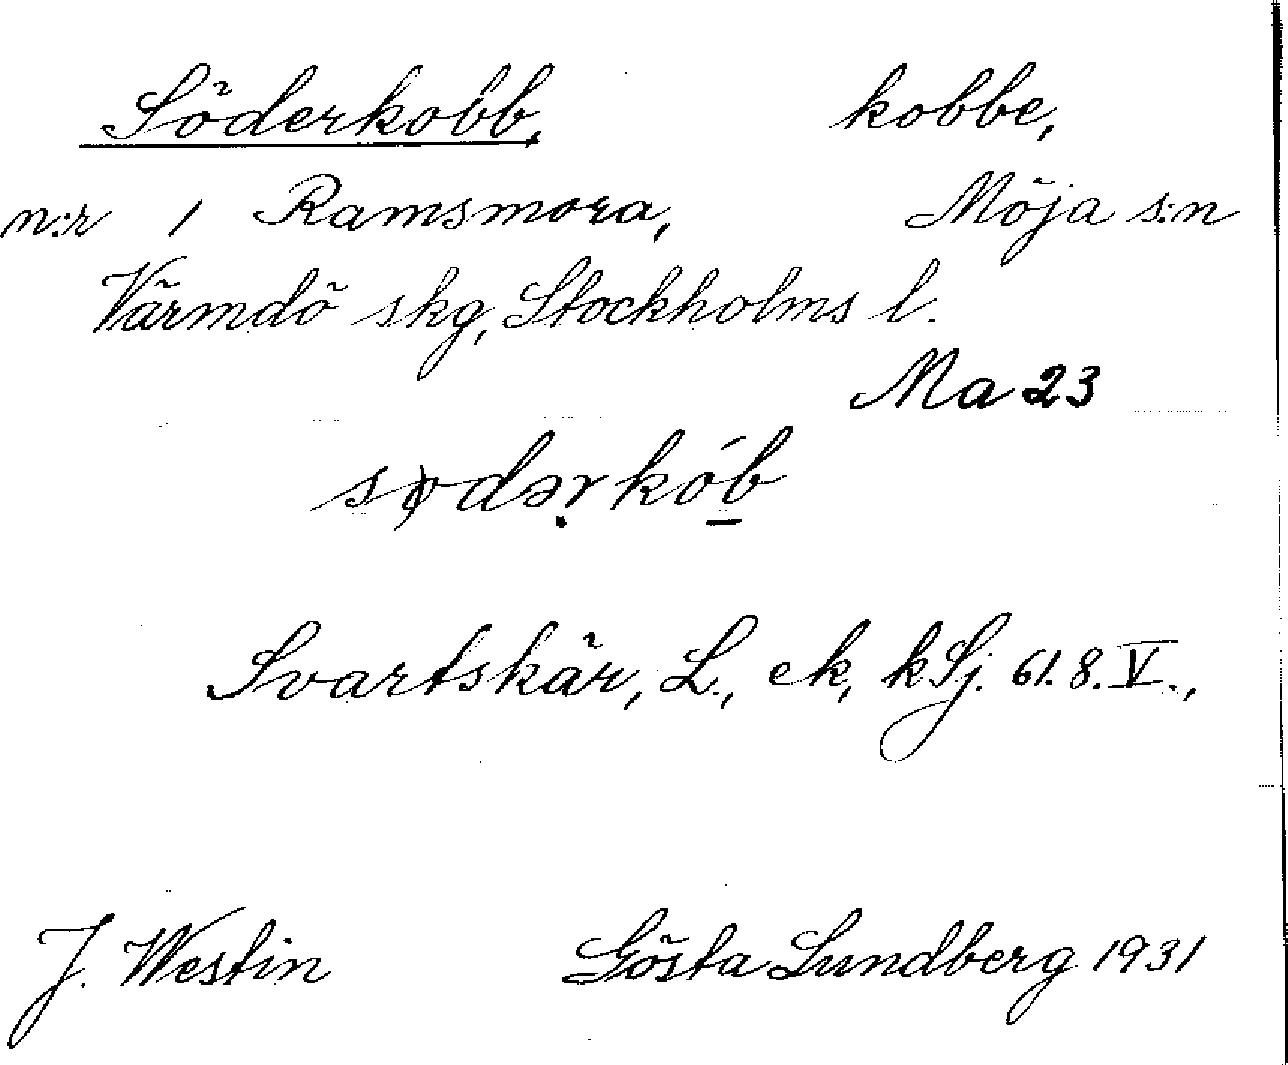 Söderkobb, kobbe,
n:r 1 Ramsmora, Möja s:n
Värmdö skg, Stockholms l.
Ma 23
Svartskär, L., ek, kSj. 61.8.V.,
J. Westin Gösta Lundberg 1931